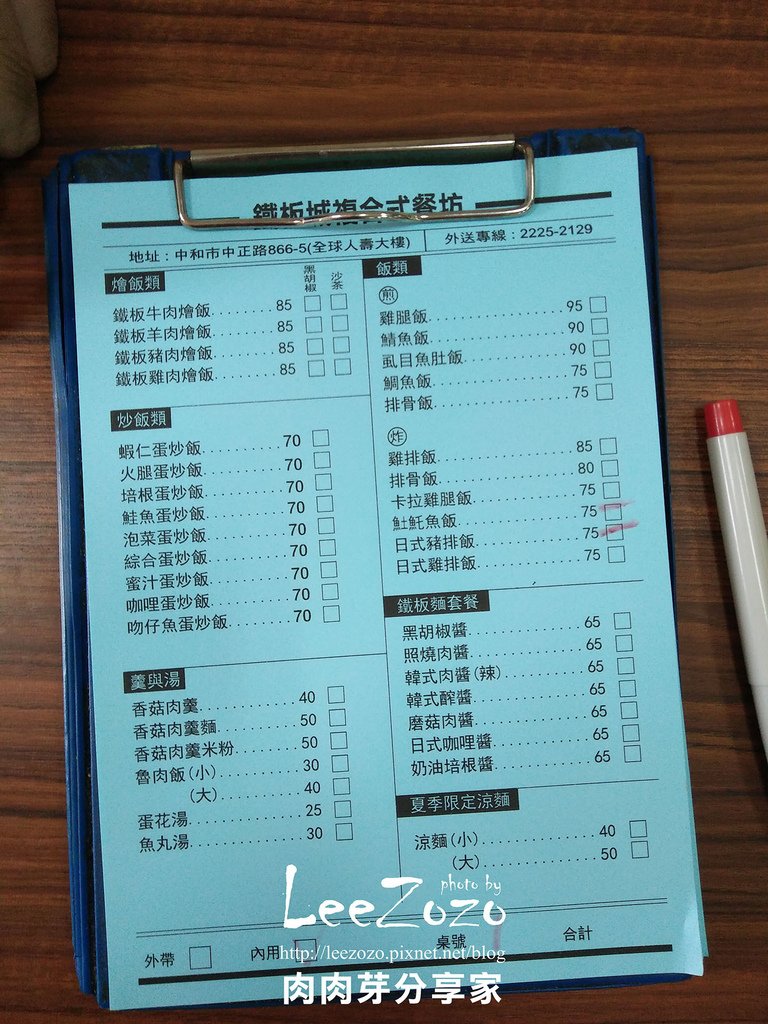 鐵板城複合式餐坊
地址：中和市中正路866-5(全球人壽大樓)
外送專線：2225-2129
燴飯類
黑胡椒
沙茶
鐵板牛肉燴飯........85
鐵板羊肉燴飯........85
鐵板豬肉燴飯........85
鐵板雞肉燴飯........85
炒飯類
蝦仁蛋炒飯..........70
火腿蛋炒飯..........70
培根蛋炒飯..........70
鮭魚蛋炒飯..........70
泡菜蛋炒飯..........70
綜合蛋炒飯..........70
蜜汁蛋炒飯..........70
咖哩蛋炒飯..........70
吻仔魚蛋炒飯........70
羹與湯
香菇肉羹............40
香菇肉羹麵..........50
香菇肉羹米粉........50
魯肉飯(小)..........30
(大)..........40
蛋花湯..............25
魚丸湯..............30
飯類
煎
雞腿飯................95
鯖魚飯................90
虱目魚肚飯............90
鯛魚飯................75
排骨飯................75
炸
雞排飯................85
排骨飯................80
卡拉雞腿飯............75
魠魠魚飯..............75
日式豬排飯............75
日式雞排飯............75
鐵板麵套餐
黑胡椒醬..............65
照燒肉醬..............65
韓式肉醬(辣)..........65
韓式酢醬..............65
磨菇肉醬..............65
日式咖哩醬............65
奶油培根醬............65
夏季限定涼麵
涼麵(小)..............40
(大)..............50
photo by
LeeZozo
外帶
內用
桌號
合計
http://leezozo.pixnet.net/blog
肉肉芽分享家